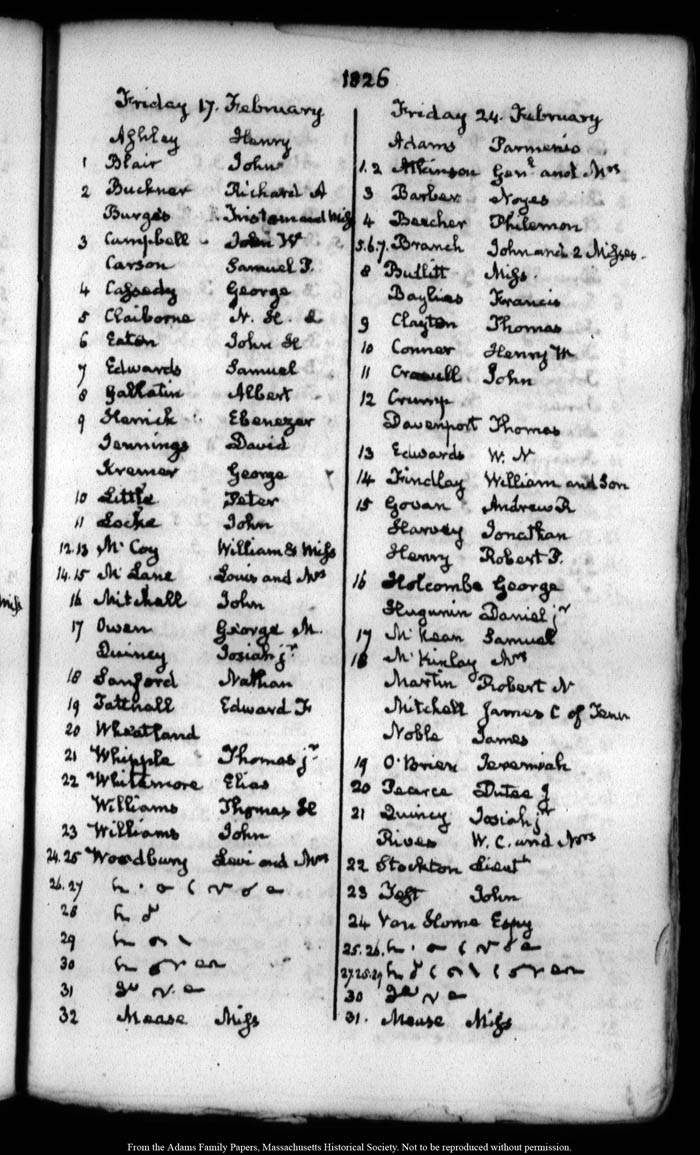 1826
Friday 17. February
Ashley Henry
1 Blair John
2 Buckner Richard A
Burges Tristam and Miss
3 Campbell John W
Carson Samuel P.
4 Cassedy George
5 Claiborne N. H.
6 Eaton John H
7 Edwards Samuel
8 Gallatin Albert
9 Herrick Ebenezer
Jennings David
Kremer George
10 Little Peter
11 Locke John
12.13 McCoy William & Miss
14.15 McLane Louis and Mrs
16 Mitchell John
17 Owen George M.
Quincy Josiah jr.
18 Sanford Nathan
19 Tattnall Edward F
20 Wheatland
21 Whipple Thomas jr
22 Whittemore Elias
Williams Thomas H
23 Williams John
24.25 Woodbury Levi and Mrs
26.27
28
29
30
31
32 Mease Miss
Friday 24. February
Adams Parmenio
1.2 Atkinson Genl and Mrs
3 Barber Noyes
4 Beecher Philemon
5.6.7. Branch John and 2 Misses.
8 Bullitt Miss
Baylies Francis
9 Clayton Thomas
10 Conner Henry W
11 Crowell John
12 Crump
Davenport Thomas
13 Edwards W. N
14 Findlay William and Son
15 Govan Andrew R
Harvey Jonathan
Henry Robert P.
16 Holcombe George
Hugunin Daniel jr
17 McKean Samuel
18 McKinlay Mrs
Martin Robert N
Mitchell James C of Tenn
Noble James
19 O'Brien Jeremiah
20 Pearce Dutee J
21 Quincy Josiah jr
Rives W. C. and Mrs
22 Stockton Lieut
23 Test John
24 Van Horne Espy
25.26.
27.28.29
30
31. Mease Miss
From the Adams Family Papers, Massachusetts Historical Society. Not to be reproduced without permission.